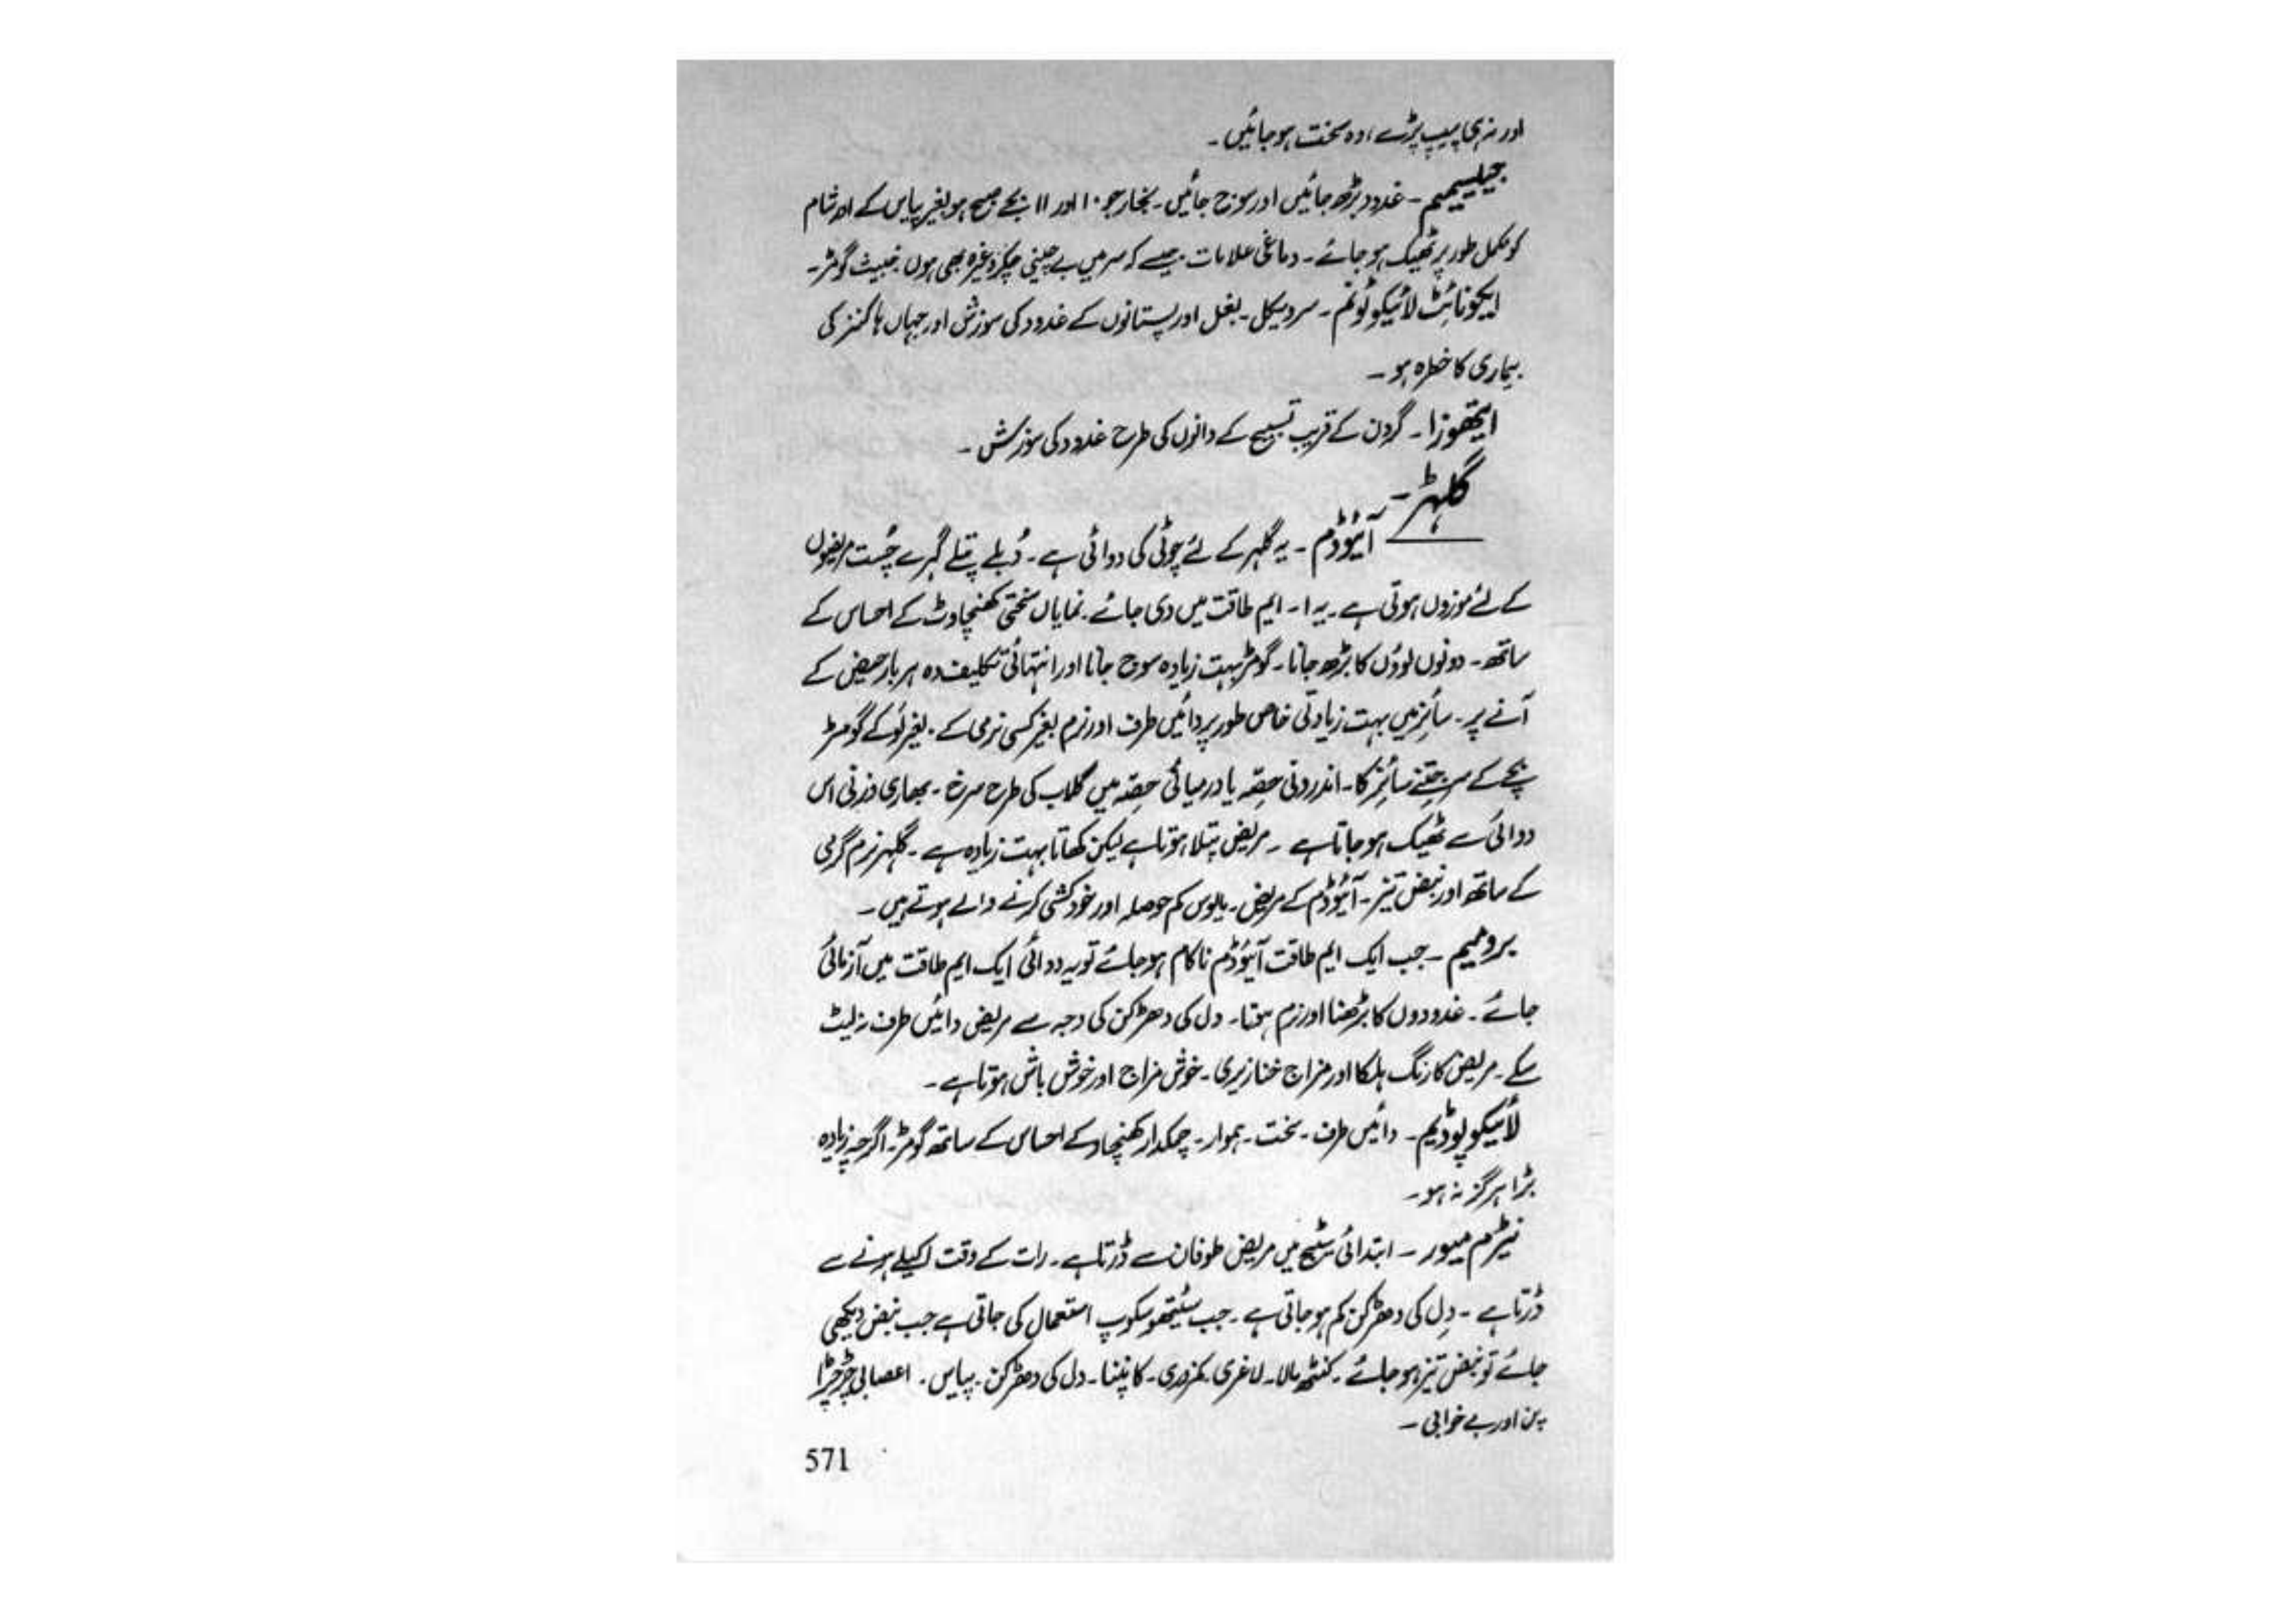 اور نہ ہی پیپ پڑے، وہ سخت ہو جائیں۔
جیلسیمیم ۔ غدود بڑھ جائیں اور سوج جائیں۔ بخار جو ۱۰ اور ۱۱ بجے صبح ہو بغیر پیاس کے اور شام
کو مکمل طور پر ٹھیک ہو جائے۔ دماغی علامات جیسے کہ سر میں بے چینی چکر وغیرہ بھی ہوں۔ خبیث گومڑ۔
ایکونائٹ لائیکوٹونم ۔ سرویکل۔ بغل اور پستانوں کے غدود کی سوزش اور جہاں ہاکنز کی
بیماری کا خطرہ ہو ۔
ایتھوزا ۔ گردن کے قریب تسبیح کے دانوں کی طرح غدود کی سوزش ۔
گلہڑ ۔
آئیوڈم ۔ یہ گلہر کے لئے چوٹی کی دوائی ہے ۔ دُبلے پتلے گہرے چُست مریضوں
کے لئے موزوں ہوتی ہے ۔ یہ ۱۔ ایم طاقت میں دی جائے ۔ نمایاں سختی کھنچاوٹ کے احساس کے
ساتھ ۔ دونوں لوؤں کا بڑھ جانا ۔ گومڑ بہت زیادہ سوج جانا اور انتہائی تکلیف دہ ہر بار حیض کے
آنے پر ۔ سائز میں بہت زیادتی خاص طور پر دائیں طرف اور نرم بغیر کسی نرمی کے ۔ بغیر لَو کے گومڑ
بچے کے سر جتنے سائز کا ۔ اندرونی حصّہ یا درمیائی حصّہ میں گلاب کی طرح سرخ ۔ بھاری وزنی اس
دوائی سے ٹھیک ہو جاتا ہے ۔ مریض پتلا ہوتا ہے لیکن کھاتا بہت زیادہ ہے ۔ گلہر نرم گرمی
کے ساتھ اور نبض تیز ۔ آئیوڈم کے مریض ۔ مایوس کم حوصلہ اور خودکشی کرنے والے ہوتے ہیں ۔
برومیم ۔ جب ایک ایم طاقت آئیوڈم ناکام ہو جائے تو یہ دوائی ایک ایم طاقت میں آزمائی
جائے ۔ غدودوں کا بڑھنا اور نرم ہونا ۔ دل کی دھڑکن کی وجہ سے مریض دائیں طرف نہ لیٹ
سکے ۔ مریض کا رنگ ہلکا اور مزاج خنازیری ۔ خوش مزاج اور خوش باش ہوتا ہے ۔
لائیکوپوڈیم ۔ دائیں طرف ۔ سخت ۔ ہموار ۔ چمکدار کھنچاو کے احساس کے ساتھ گومڑ ۔ اگرچہ زیادہ
بڑا ہرگز نہ ہو ۔
نیٹرم میور ۔ ابتدائی سٹیج میں مریض طوفان سے ڈرتا ہے ۔ رات کے وقت اکیلے ہونے سے
ڈرتا ہے ۔ دِل کی دھڑکن کم ہو جاتی ہے ۔ جب سٹیتھوسکوپ استعمال کی جاتی ہے جب نبض دیکھی
جائے تو نبض تیز ہو جائے ۔ کنٹھ مالا ۔ لاغری ۔ کمزوری ۔ کانپنا ۔ دل کی دھڑکن ۔ پیاس ۔ اعصابی چڑچڑا
پن اور بے خوابی ۔
571